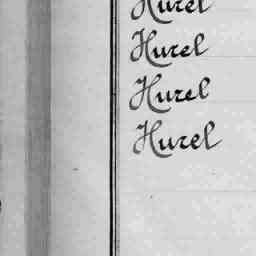 Hurel
Hurel
Hurel
Hurel